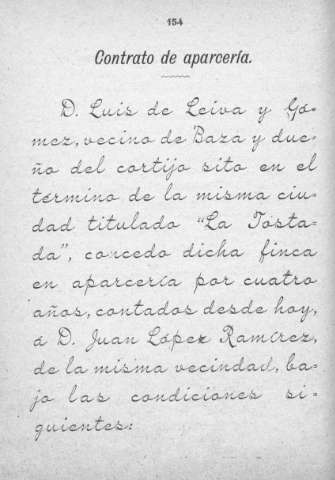 154
Contrato de aparcería.
D. Luis de Leiva y Gó-
mez, vecino de Baza y due-
ño del cortijo sito en el
término de la misma ciu-
dad titulado "La Tosta-
da", concedo dicha finca
en aparcería por cuatro
años, contados desde hoy,
á D. Juan López Ramírez,
de la misma vecindad, ba-
jo las condiciones si-
guientes: